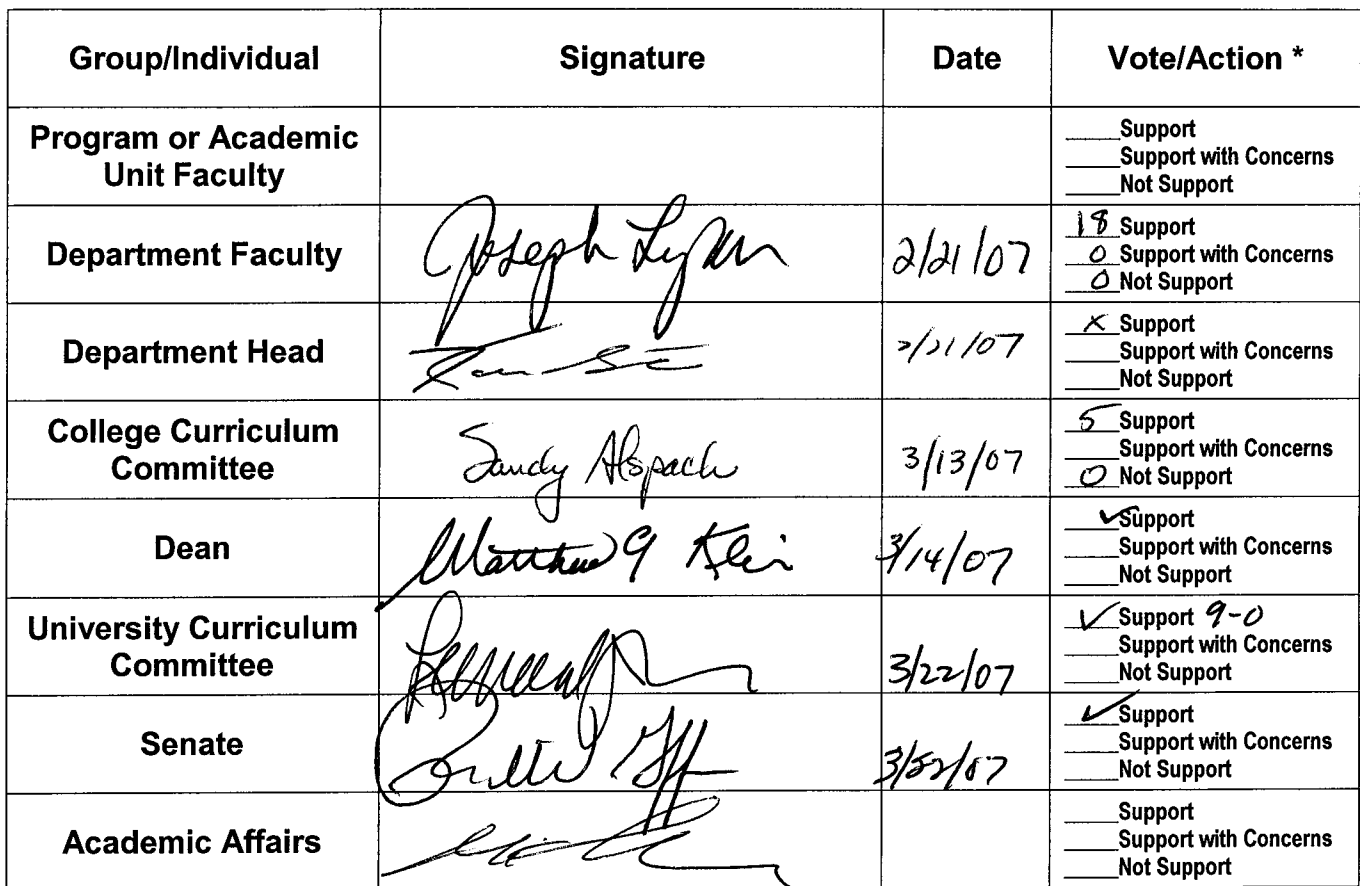 Group/Individual Signature Date Vote/Action *
Program or Academic Unit Faculty
____Support
____Support with Concerns
____Not Support
Department Faculty Joseph 2/21/07
18 Support
0 Support with Concerns
0 Not Support
Department Head 2/21/07
X Support
____Support with Concerns
____Not Support
College Curriculum Committee Sandy Alspach 3/13/07
5 Support
____Support with Concerns
0 Not Support
Dean Matthew 9 Klein 3/14/07
✓ Support
____Support with Concerns
____Not Support
University Curriculum Committee 3/22/07
✓ Support 9-0
____Support with Concerns
____Not Support
Senate
✓ Support
____Support with Concerns
____Not Support
Academic Affairs
____Support
____Support with Concerns
____Not Support